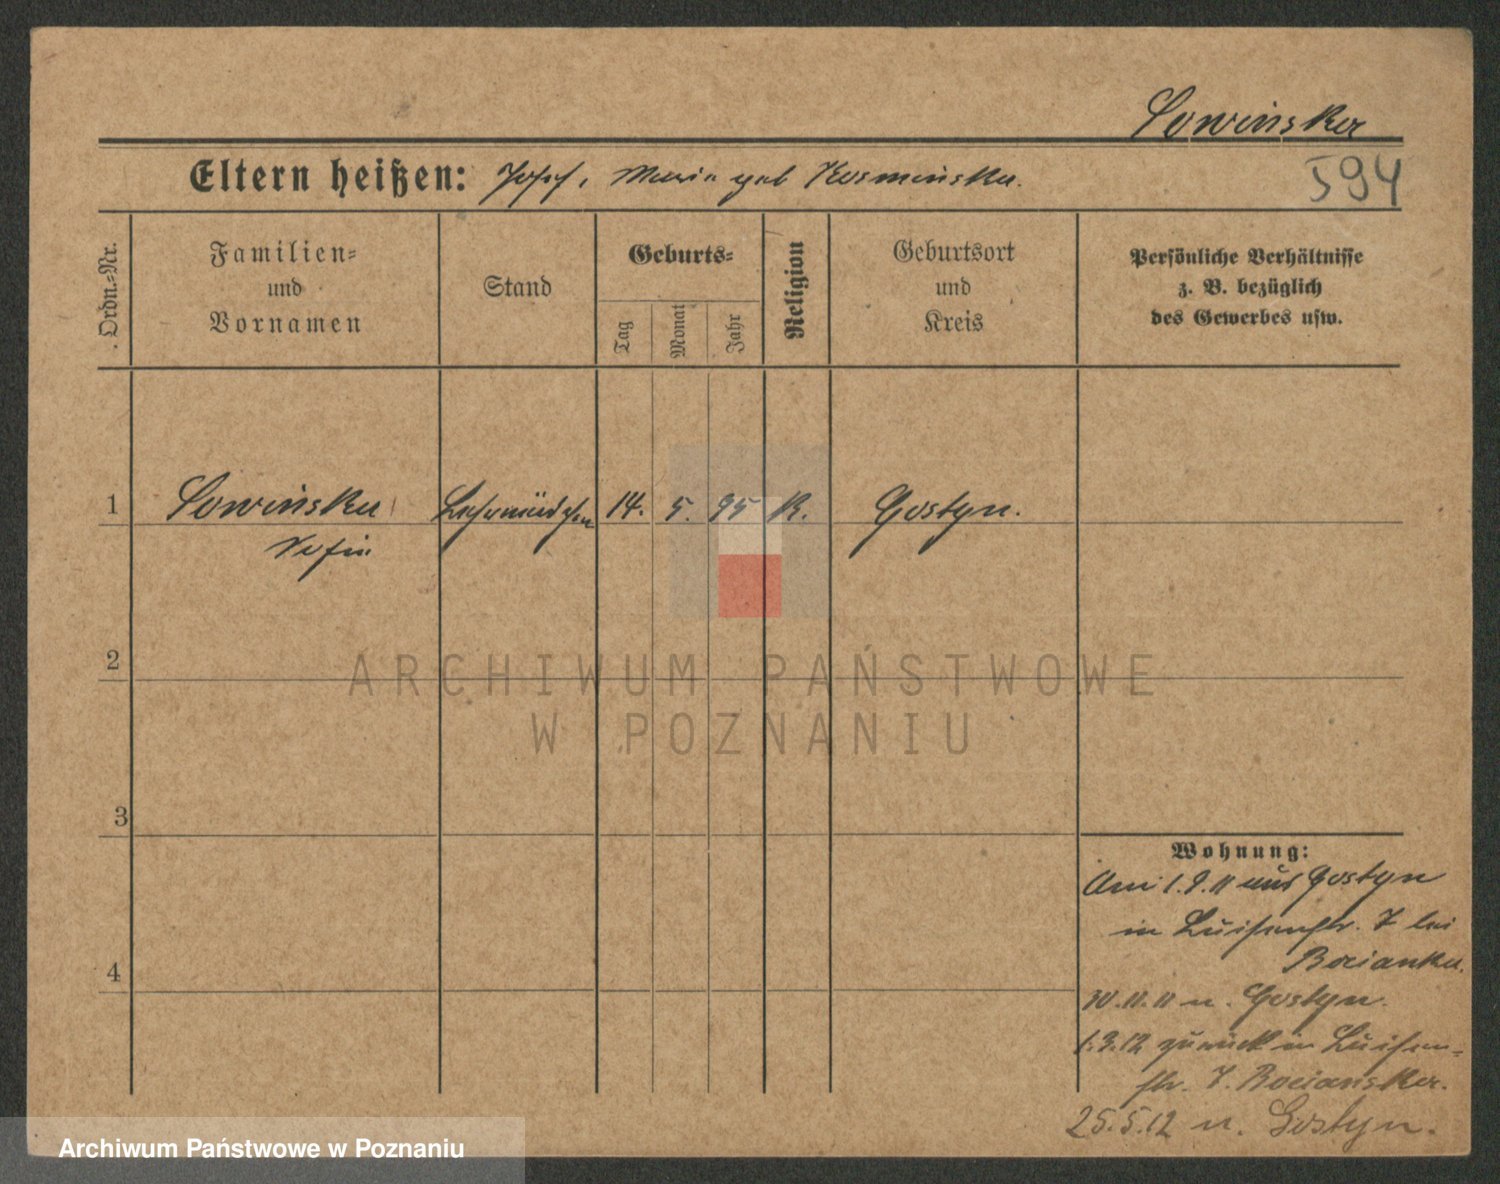 Sowinska
Eltern heißen: Josef, Maria geb Kosminska.
594
Ordn.-Nr.
Familien-
und
Vornamen
Stand
Geburts-
Tag
Monat
Jahr
Religion
Geburtsort
und
Kreis
Persönliche Verhältnisse
z. B. bezüglich
des Gewerbes usw.
1 Sowinska Lehrmädchen 14. 5. 95 K. Gostyn.
2
3
4
Wohnung:
Am 1.9.11 aus Gostyn
in Luisenstr. 7 bei
30.11.11 n. Gostyn.
zurück in Luisen-
str. 7.
25.5.12 n. Gostyn.
ARCHIWUM PAŃSTWOWE
W POZNANIU
Archiwum Państwowe w Poznaniu